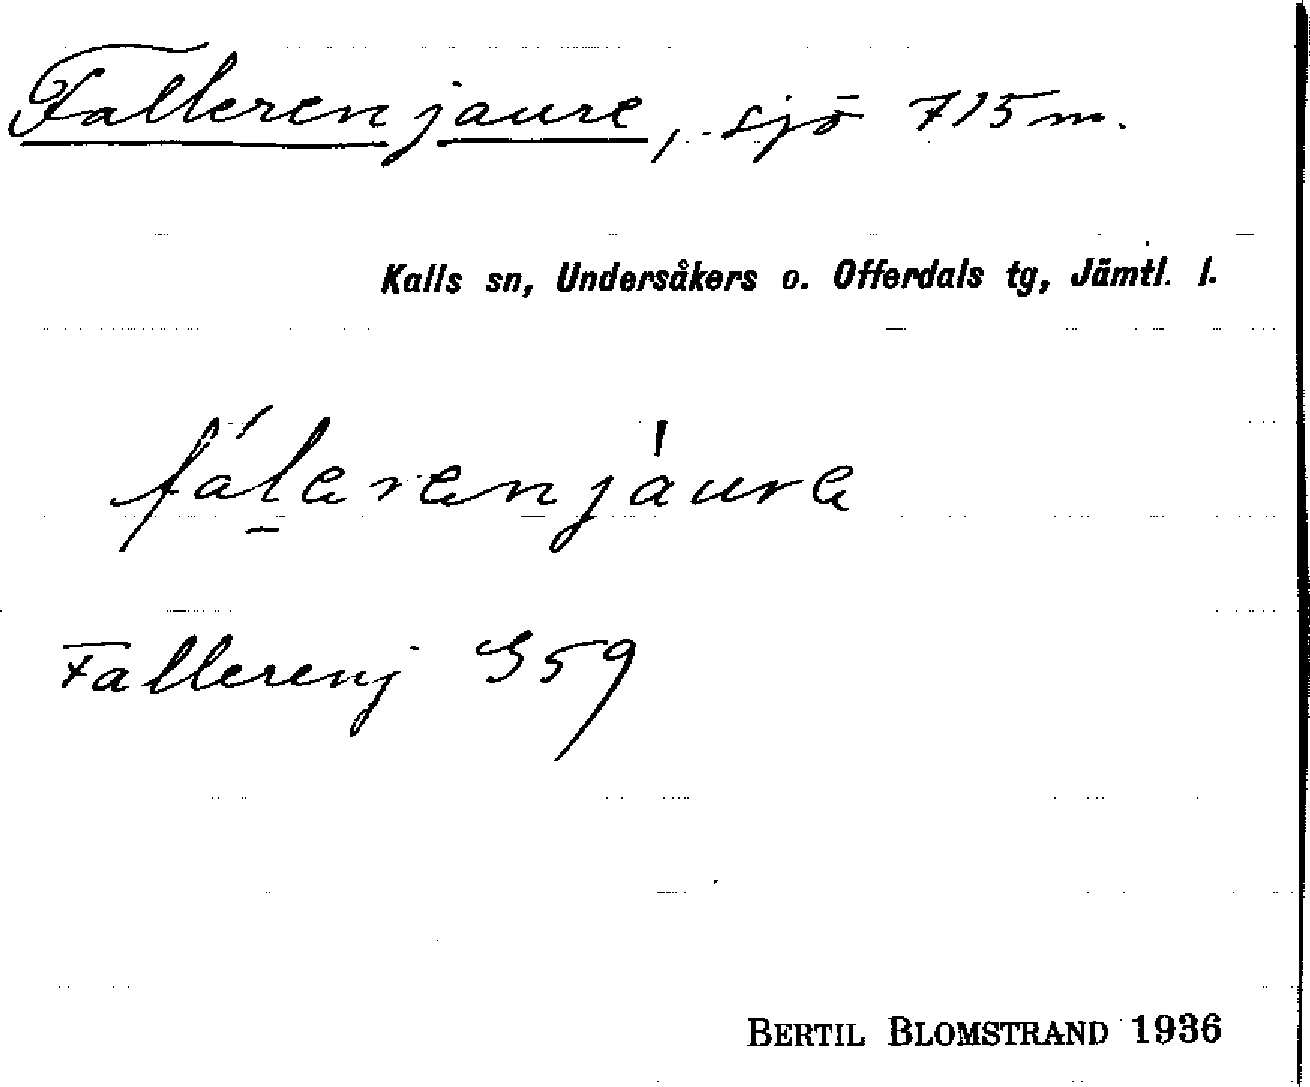 Fallerenjaure, sjö 715 m.
Kalls sn, Undersåkers o. Offerdals tg, Jämtl. l.
fálerenjaure
Fallerenj S59
BERTIL BLOMSTRAND 1936